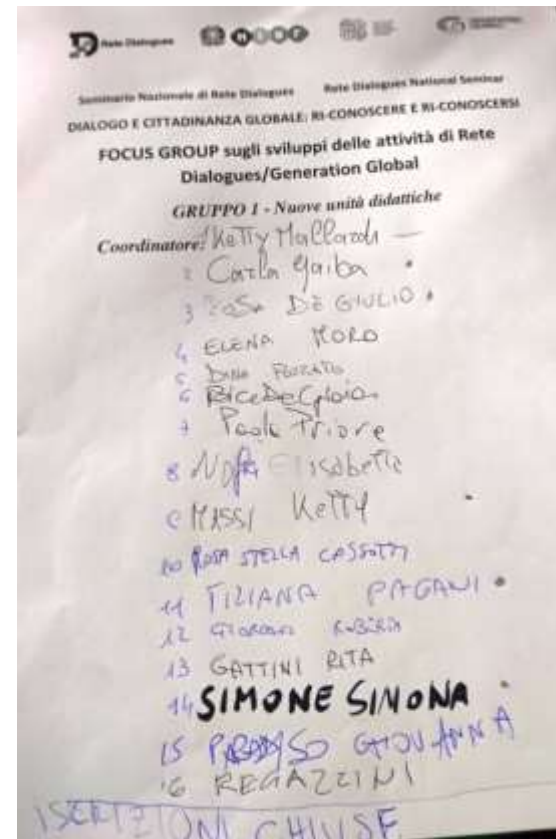 Rete Dialogues
Seminario Nazionale di Rete Dialogues Rete Dialogues National Seminar
DIALOGO E CITTADINANZA GLOBALE: RI-CONOSCERE E RI-CONOSCERSI
FOCUS GROUP sugli sviluppi delle attività di Rete
Dialogues/Generation Global
GRUPPO 1 - Nuove unità didattiche
Coordinatore: Ketty Mallardi
2 Carla Gaiba
3 ROSA DE GIULIO
4 ELENA MORO
5 DINA
6 Bice De Gioia
7 Paola Priore
8 Elisabetta
9 MASSI Ketty
10 ROSA STELLA CASSOTTI
11 TIZIANA PAGANI
12
13 GATTINI RITA
14 SIMONE SIMONA
15 PARADISO GIOVANNA
16 REGAZZINI
ISCRIZIONI CHIUSE